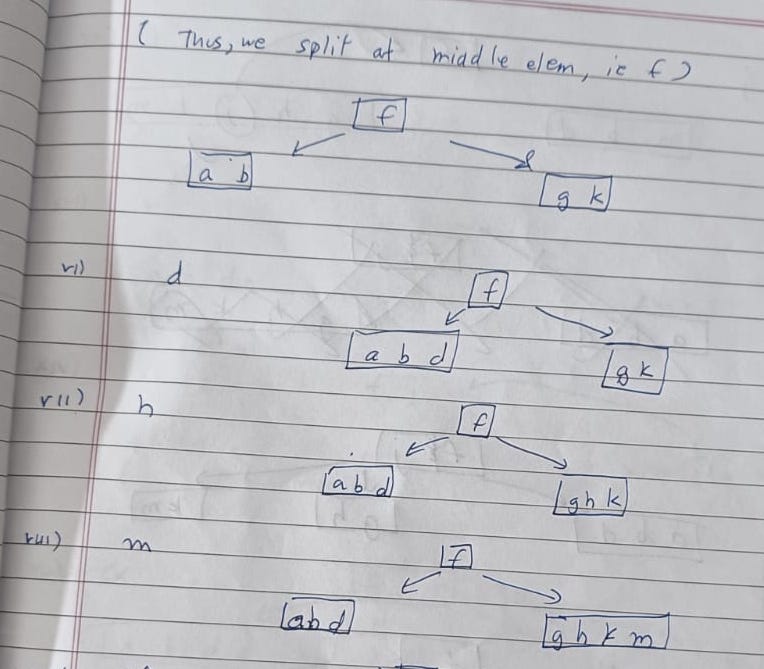 ( Thus, we split at middle elem, ie f )
f
a b
g k
vi) d
f
a b d
g k
vii) h
f
a b d
g h k
viii) m
f
a b d
g h k m